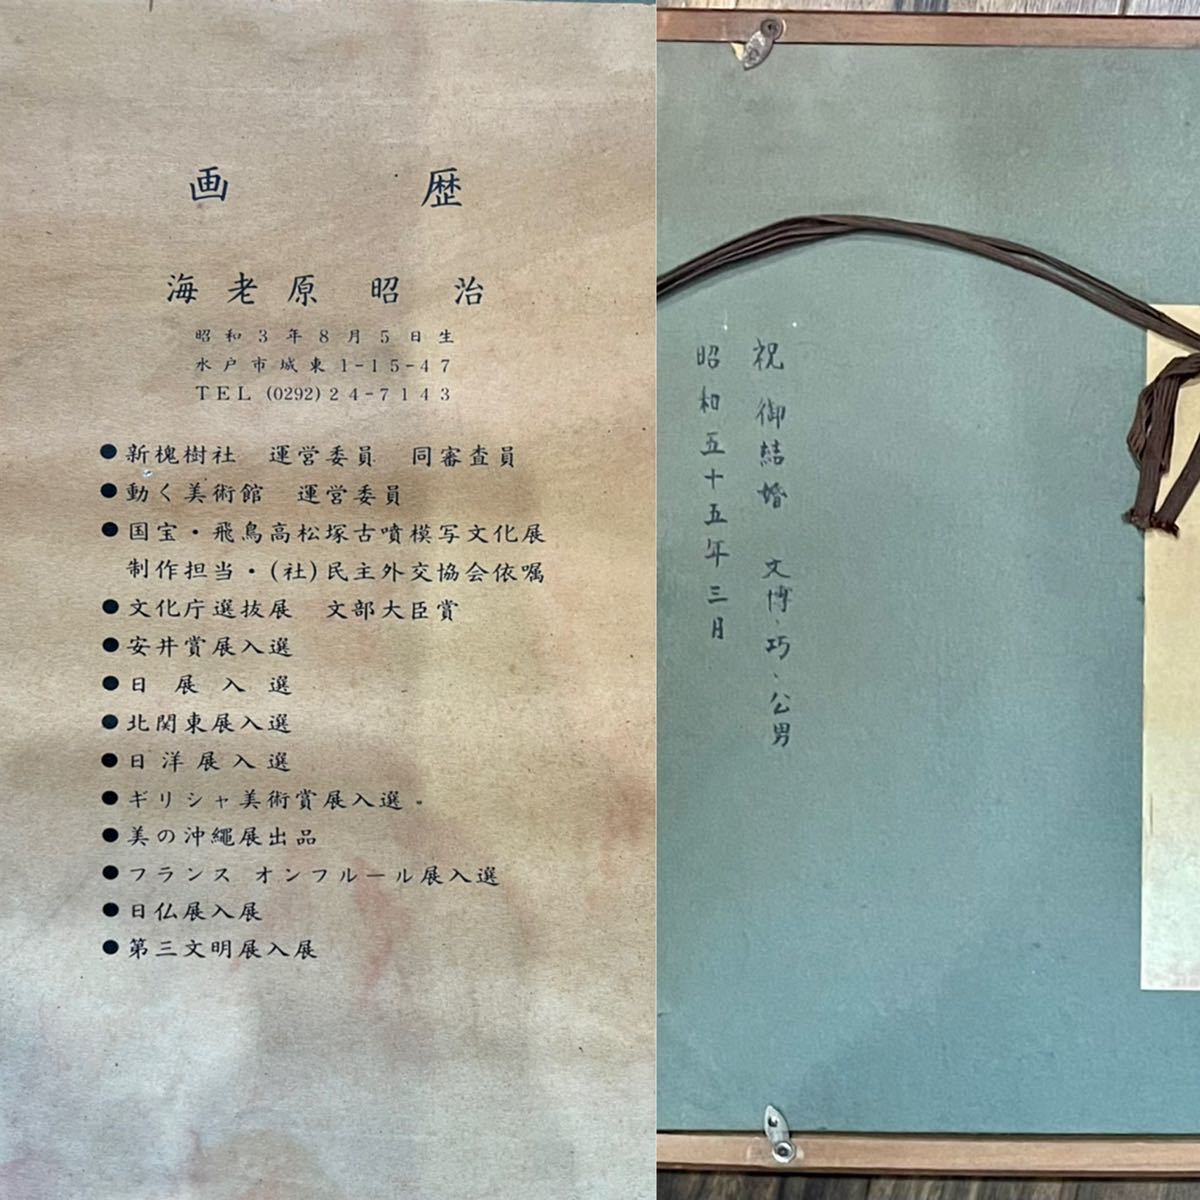 画歴
海老原 昭治
昭和3年8月5日生
水戸市城東1-15-47
TEL (0292)24-7143
●新槐樹社 運営委員 同審査員
●動く美術館 運営委員
●国宝・飛鳥高松塚古噴模写文化展
制作担当・(社)民主外交協会依嘱
●文化庁選抜展 文部大臣賞
●安井賞展入選
●日展入選
●北関東展入選
●日洋展入選
●ギリシャ美術賞展入選
●美の沖縄展出品
●フランス オンフルール展入選
●日仏展入展
●第三文明展入展
祝 御結婚 文博、巧、公男
昭和五十五年三月